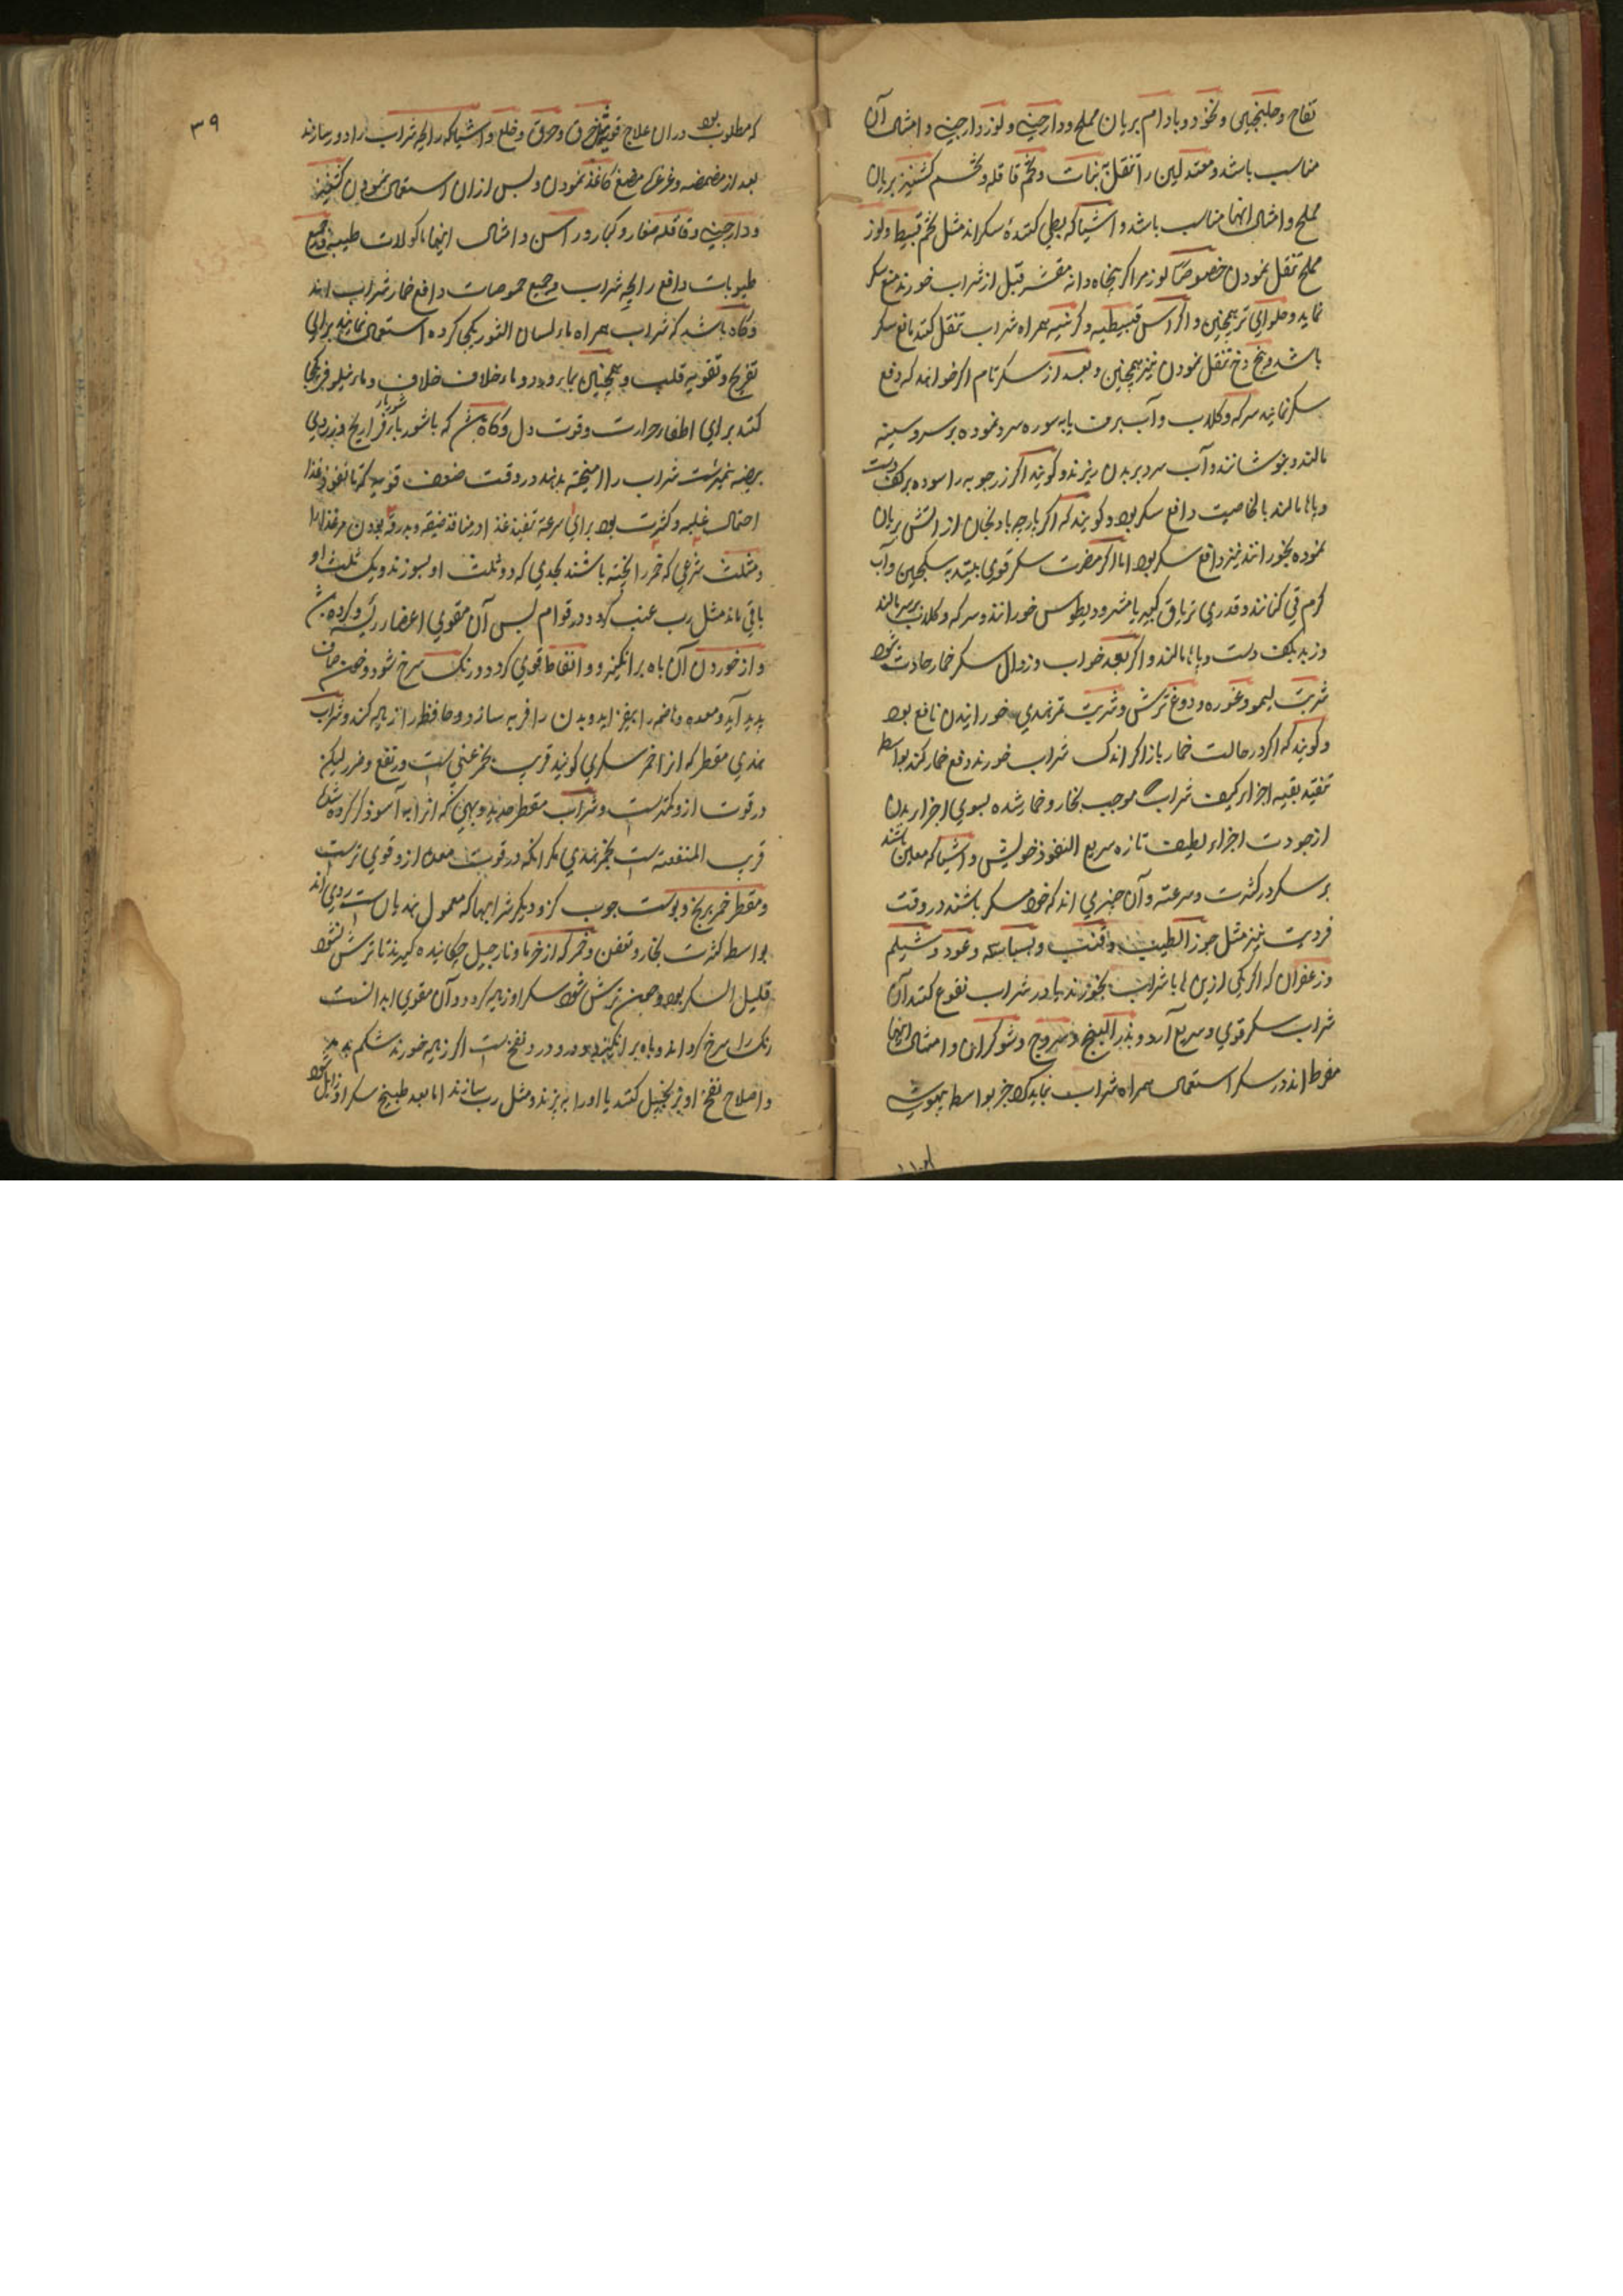 تفاح و جلنجبین و نخود و بادام بریان مملح و دارچینی و لوز دارچینی و امثال آن
مناسب باشد و معتدلین را تنقل بنبات و تخم قاقله و تخم کشنیز بریان
مملح و امثال انها مناسب باشد و اشیا که بطی کننده سکراند مثل تخم قنبیط و لوز
مملح تنقل نمودن خصوصًا لوز مر اکر پنجاه دانه مقشر قبل از شراب خورند منع سکر
نماید و حلوای ترنجبین و اکر اس قنبیطیه و کرنبیه همراه شراب تنقل کنند مانع سکر
باشد و تنقل نمودن نیز همچنین و بعد از سکر تام اکر خواهند که دفع
سکر نمایند سرکه و کلاب و آب برف یا به سوره سرد نموده بر سر و سینه
مالند و بنوشانند و آب سرد بر بدن ریزند و کویند اکر زرچوبه را سوده بر کف دست
و پاها مالند بالخاصیت دافع سکر بود و کویند که اکر پارچه بادنجان از اتش بریان
نموده بخورانند نیز دافع سکر بود اما اکر مضرت سکر قوی بیند به سکنجبین و آب
کرم قی کنانند و قدری تریاق کبیر یا مثرودیطوس خورانند و سرکه و کلاب بر سر مالند
و زبد بکف دست و پاها مالند و اکر بعد خواب و زوال سکر خمار حادث شود
شربت لیمو و غوره و دوغ ترش و شربت تمرهندی خورانیدن نافع بود
و کویند که اکر در حالت خمار باز اکر اندک شراب خورند دفع خمار کند بواسطه
تنقیه بقیه اجزاء کیف شراب موجب بخار و خمار شده بسوی اجزاء بدن
از جودت اجزاء لطیف تازه سریع النفوذ خویش و اشیا که معین باشند
بر سکر در کثرت و سرعته و آن چیزی اند که خود مسکر باشند در وقت
فردیت نیز مثل جوز الطیب و قنب و بسباسه و عود و شیلم
و زعفران که اکر یکی ازین ها با شراب بخورند یا در شراب نقوع کنند آن
شراب سکر قوی و سریع آرد و بذر البنج و یبروج و شوکران و امثال اینها
مفرط اند در سکر استعمال همراه شراب نباید کرد جز بواسطه بیهوشی
۳۹
که مطلوب بود در ان علاج قوی مثل خرق و حرق و خلع و اشیا که رایحه شراب را دور سازند
بعد از مضمضه و غرغره مضغ کاغذ نمودن و پس ازان استعمال نمودن کشنیز
و دارچینی و قاقله صغار و کبار و راسن و امثال اینها ماکولات طیبه و جمیع
طیوبات دافع رایحه شراب و جمیع حموضات دافع خمار شراب اند
و کاه باشد که شراب همراه ماء لسان الثور یکی کرده استعمال نمایند برای
تفریح و تقویه قلب و همچنین بماء ورد و ماء خلاف و ماء نیلوفر یکجا
کنند برای اطفاء حرارت و قوت دل و کاه باشد که با شوربای فراریج و زردی
بیضه نیمبرشت شراب را امیخته بدهند در وقت ضعف قوی که تا نفوذ غذا
احتمال غلبه و کثرت بود برای سرعة تنفیذ غذا در منافذ ضیقه و بدرقه بودن مر غذا را
و مثلث شرعی که خمر را پخته باشند بحدی که دو ثلث او بسوزند و یک ثلث او
باقی ماند مثل رب عنب کردد در قوام پس آن مقوی اعضاء رئیسه و کرده
و از خوردن آن باه برانکیزد و انعاظ قوی کردد و رنک سرخ شود و ذهن صاف
پدید آید و معده و هاضمه را بیفزاید و بدن را فربه سازد و حافظه را زیاده کند و شراب
هندی مقطر که از اخمر سکری کویند قریب بخمر عنبی ست در نفع و ضرر لیکن
در قوت ازو کمتر ست و شراب مقطر جدید و بهی که انرا به آسو ذکر کرده شد
قریب المنفعت ست بخمر هندی مکر انکه در قوت معده ازو قوی ترست
و مقطر خمر برنج و پوست چوب کز و دیکر شرابها که معمول هندیان ست ردی اند
بواسطه کثرت بخار و تعفن و خمر که از خرما و نارجیل چکانیده کیرند تا ترش نشود
قلیل السکر بود و چون ترش شود سکر او زیاده کردد و آن مقوی ابدانست
رنک را سرخ کرداند و باه برانکیزد و نفخ ست اکر زیاده خورند شکم
و اصلاح نفخ او بزنجبیل کنند یا او را به پزند و مثل رب سازند اما بعد طبیخ سکر او زایل شود